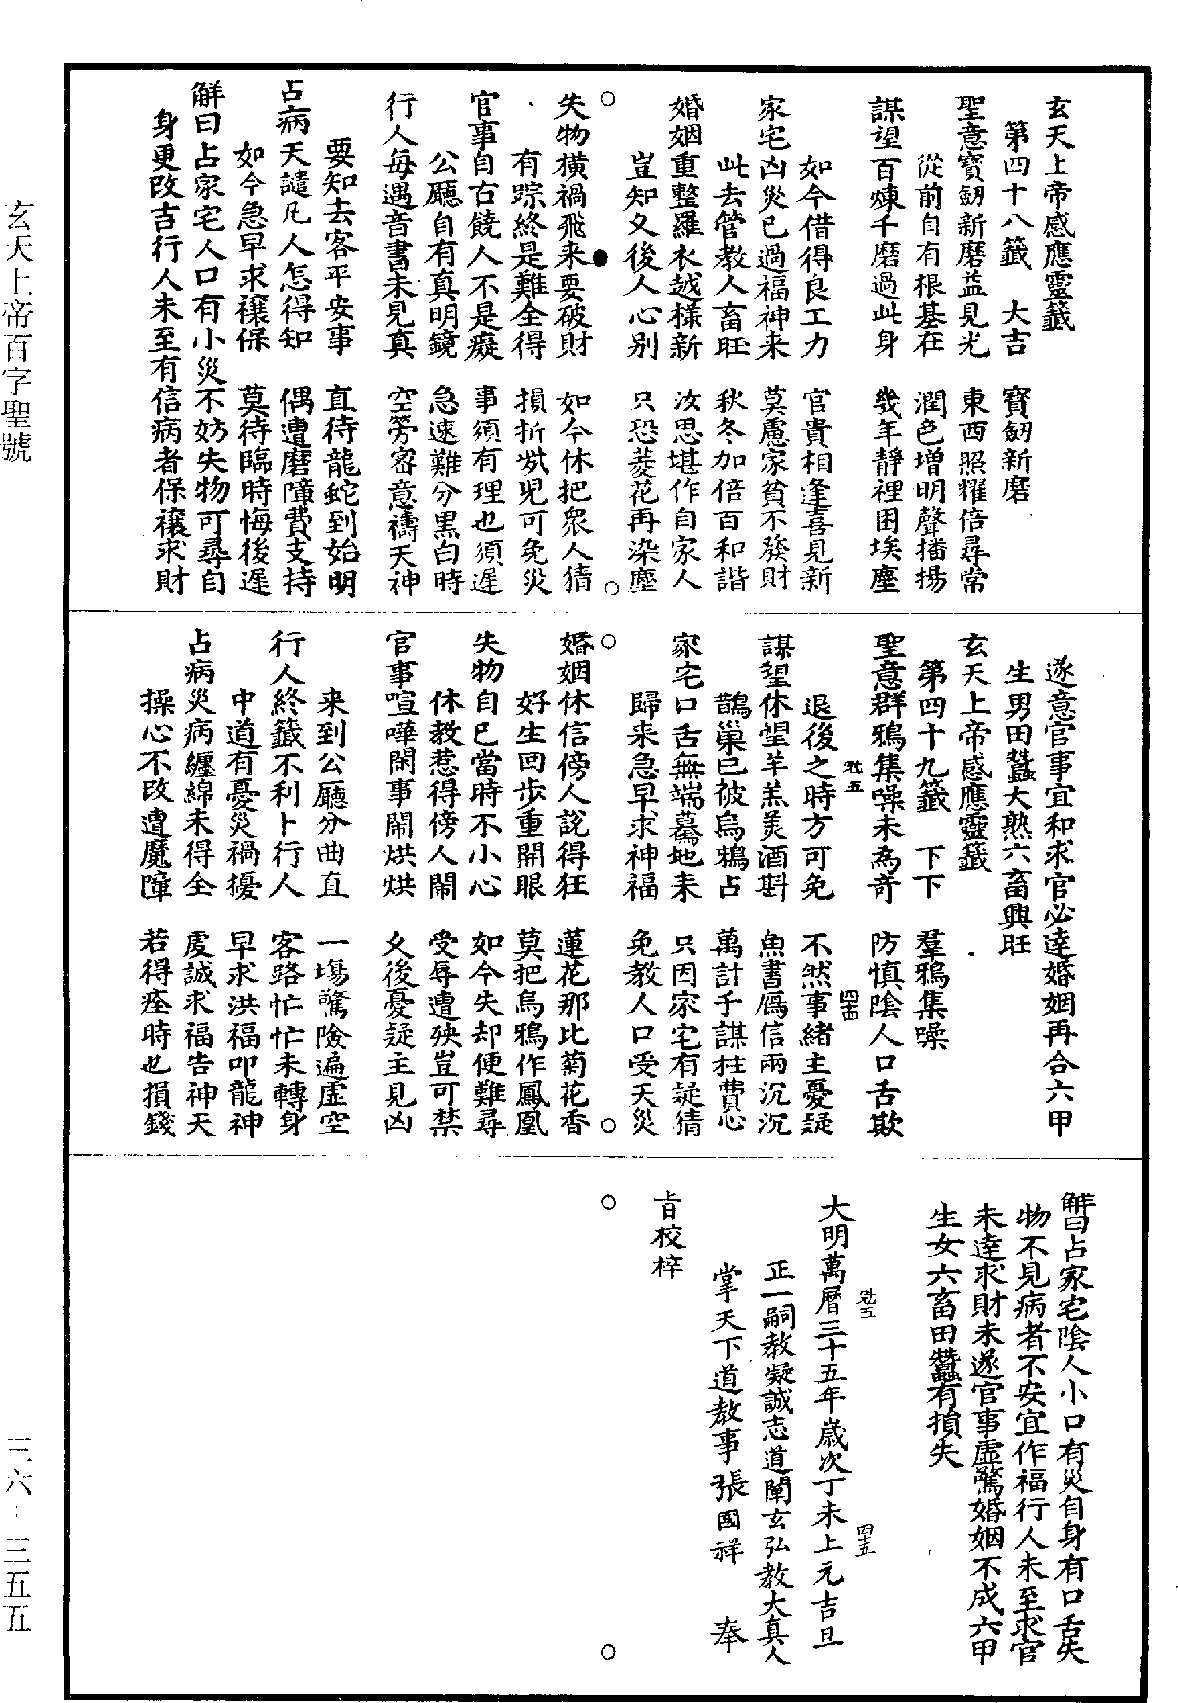 玄天上帝感應靈籤
第四十八籤　大吉　寶劒新磨
聖意寶劒新磨益見光　東西照耀倍尋常
從前自有根基在　潤色增明聲播揚
謀望百煉千磨過此身　幾年靜裡困埃塵
如今借得良工力　官貴相逢喜見新
家宅凶災已過福神来　莫慮家貧不發財
此去管教人畜旺　秋冬加倍百和諧
婚姻重整羅衣越樣新　汝思堪作自家人
豈知久後人心別　只恐菱花再染塵
失物橫禍飛来要破財　如今休把衆人猜
有踪終是難全得　損折些兒可免災
官事自古饒人不是癡　事須有理也須遲
公廳自有真明鏡　急速難分黑白時
行人每遇音書未見真　空勞密意禱天神
要知去客平安事　直待龍蛇到始明
占病天譴凡人怎得知　偶遭磨障費支持
如今急早求禳保　莫待臨時悔後遲
解曰占家宅人口有小災不妨失物可尋自
身更改吉行人未至有信病者保禳求財
遂意官事宜和求官必達婚姻再合六甲
生男田蠶大熟六畜興旺
玄天上帝感應靈籤
第四十九籤　下下　羣鴉集噪
聖意群鴉集噪未為奇　防慎陰人口舌欺
退後之時方可免　不然事緒主憂疑
謀望休望羊羔美酒斟　魚書鴈信兩沉沉
鵲巢已被烏鴉占　萬計千謀枉費心
家宅口舌無端驀地来　只因家宅有疑猜
歸来急早求神福　免教人口受天災
婚姻休信傍人說得狂　蓮花那比菊花香
好生回步重開眼　莫把烏鴉作鳳凰
失物自己當時不小心　如今失却便難尋
休教惹得傍人鬧　受辱遭殃豈可禁
官事喧嘩閙事鬧烘烘　久後憂疑主見凶
来到公廳分曲直　一塲驚險遍虛空
行人終籤不利卜行人　客路忙忙未轉身
中道有憂災禍擾　早求洪福叩龍神
占病災病纏綿未得全　虔誠求福告神天
操心不改遭魔障　若得痊時也損錢
解曰占家宅陰人小口有災自身有口舌失
物不見病者不安宜作福行人未至求官
未達求財未遂官事虛驚婚姻不成六甲
生女六畜田蠶有損失
大明萬曆三十五年歲次丁未上元吉旦
正一嗣教凝誠志道闡玄弘教大真人
掌天下道教事張國祥　奉
旨校梓
玄天上帝百字聖號
三六·三五五